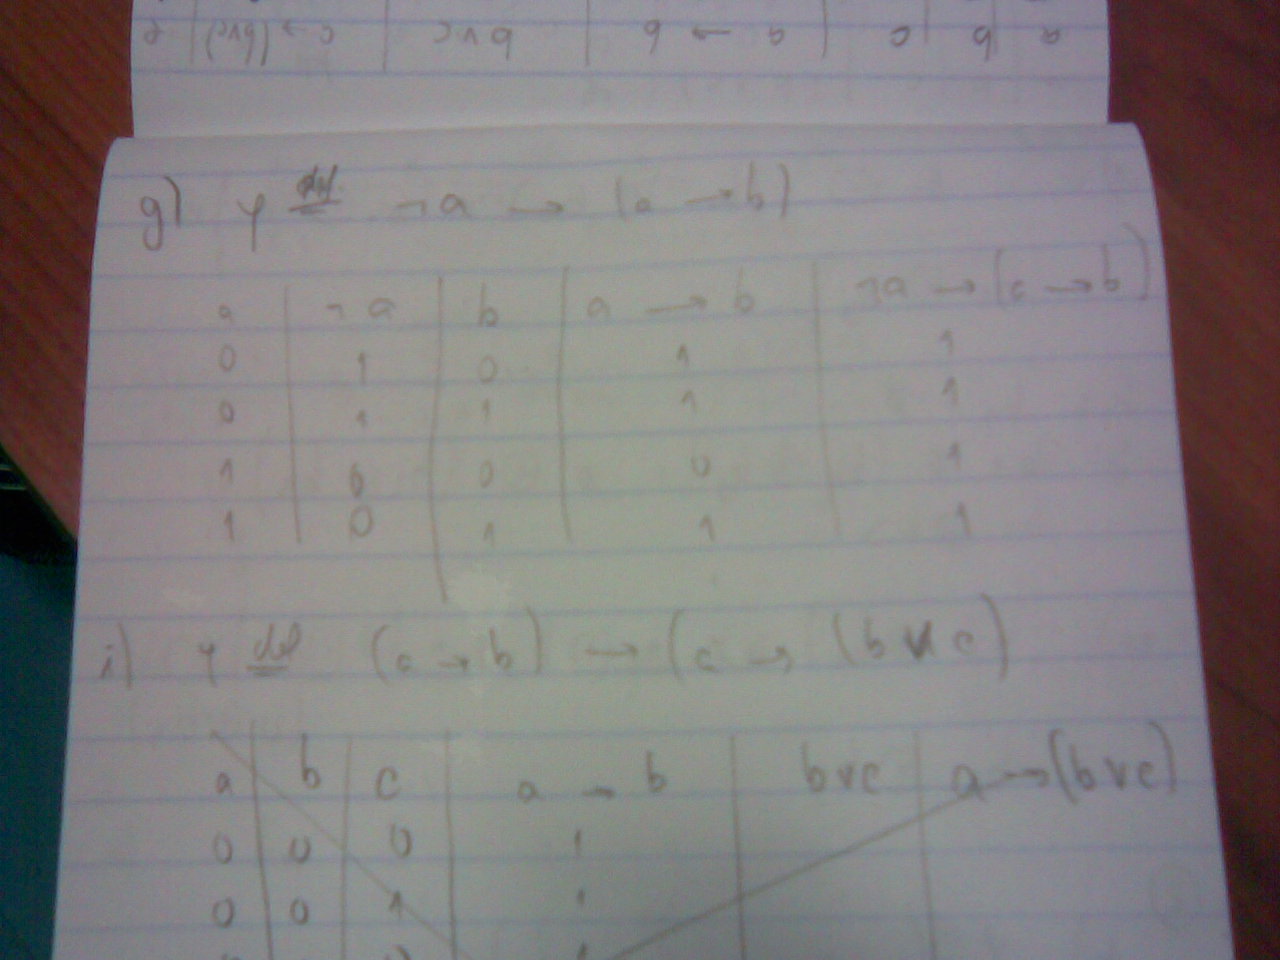 a | b | c | a → b | b v c | a → (b v c) |
g) φ def ¬a → (a → b)
a | ¬a | b | a → b | ¬a → (a → b)
0 | 1 | 0 | 1 | 1
0 | 1 | 1 | 1 | 1
1 | 0 | 0 | 0 | 1
1 | 0 | 1 | 1 | 1
i) φ def (a → b) → (a → (b v c)
a | b | c | a → b | b v c | a → (b v c)
0 | 0 | 0 | 1
0 | 0 | 1 | 1